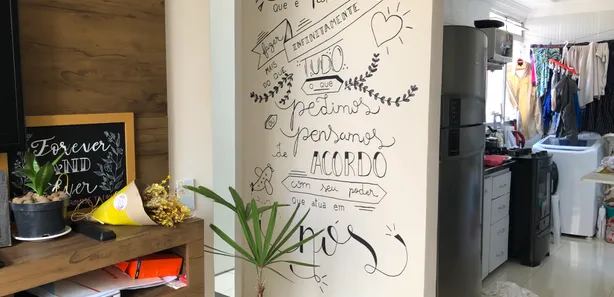 Forever
AND
Ever
que é
fazer
INFINITAMENTE
MAIS
DO QUE
TUDO
O QUE
pedimos
pensamos
de
ACORDO
com seu poder
que atua em
nós